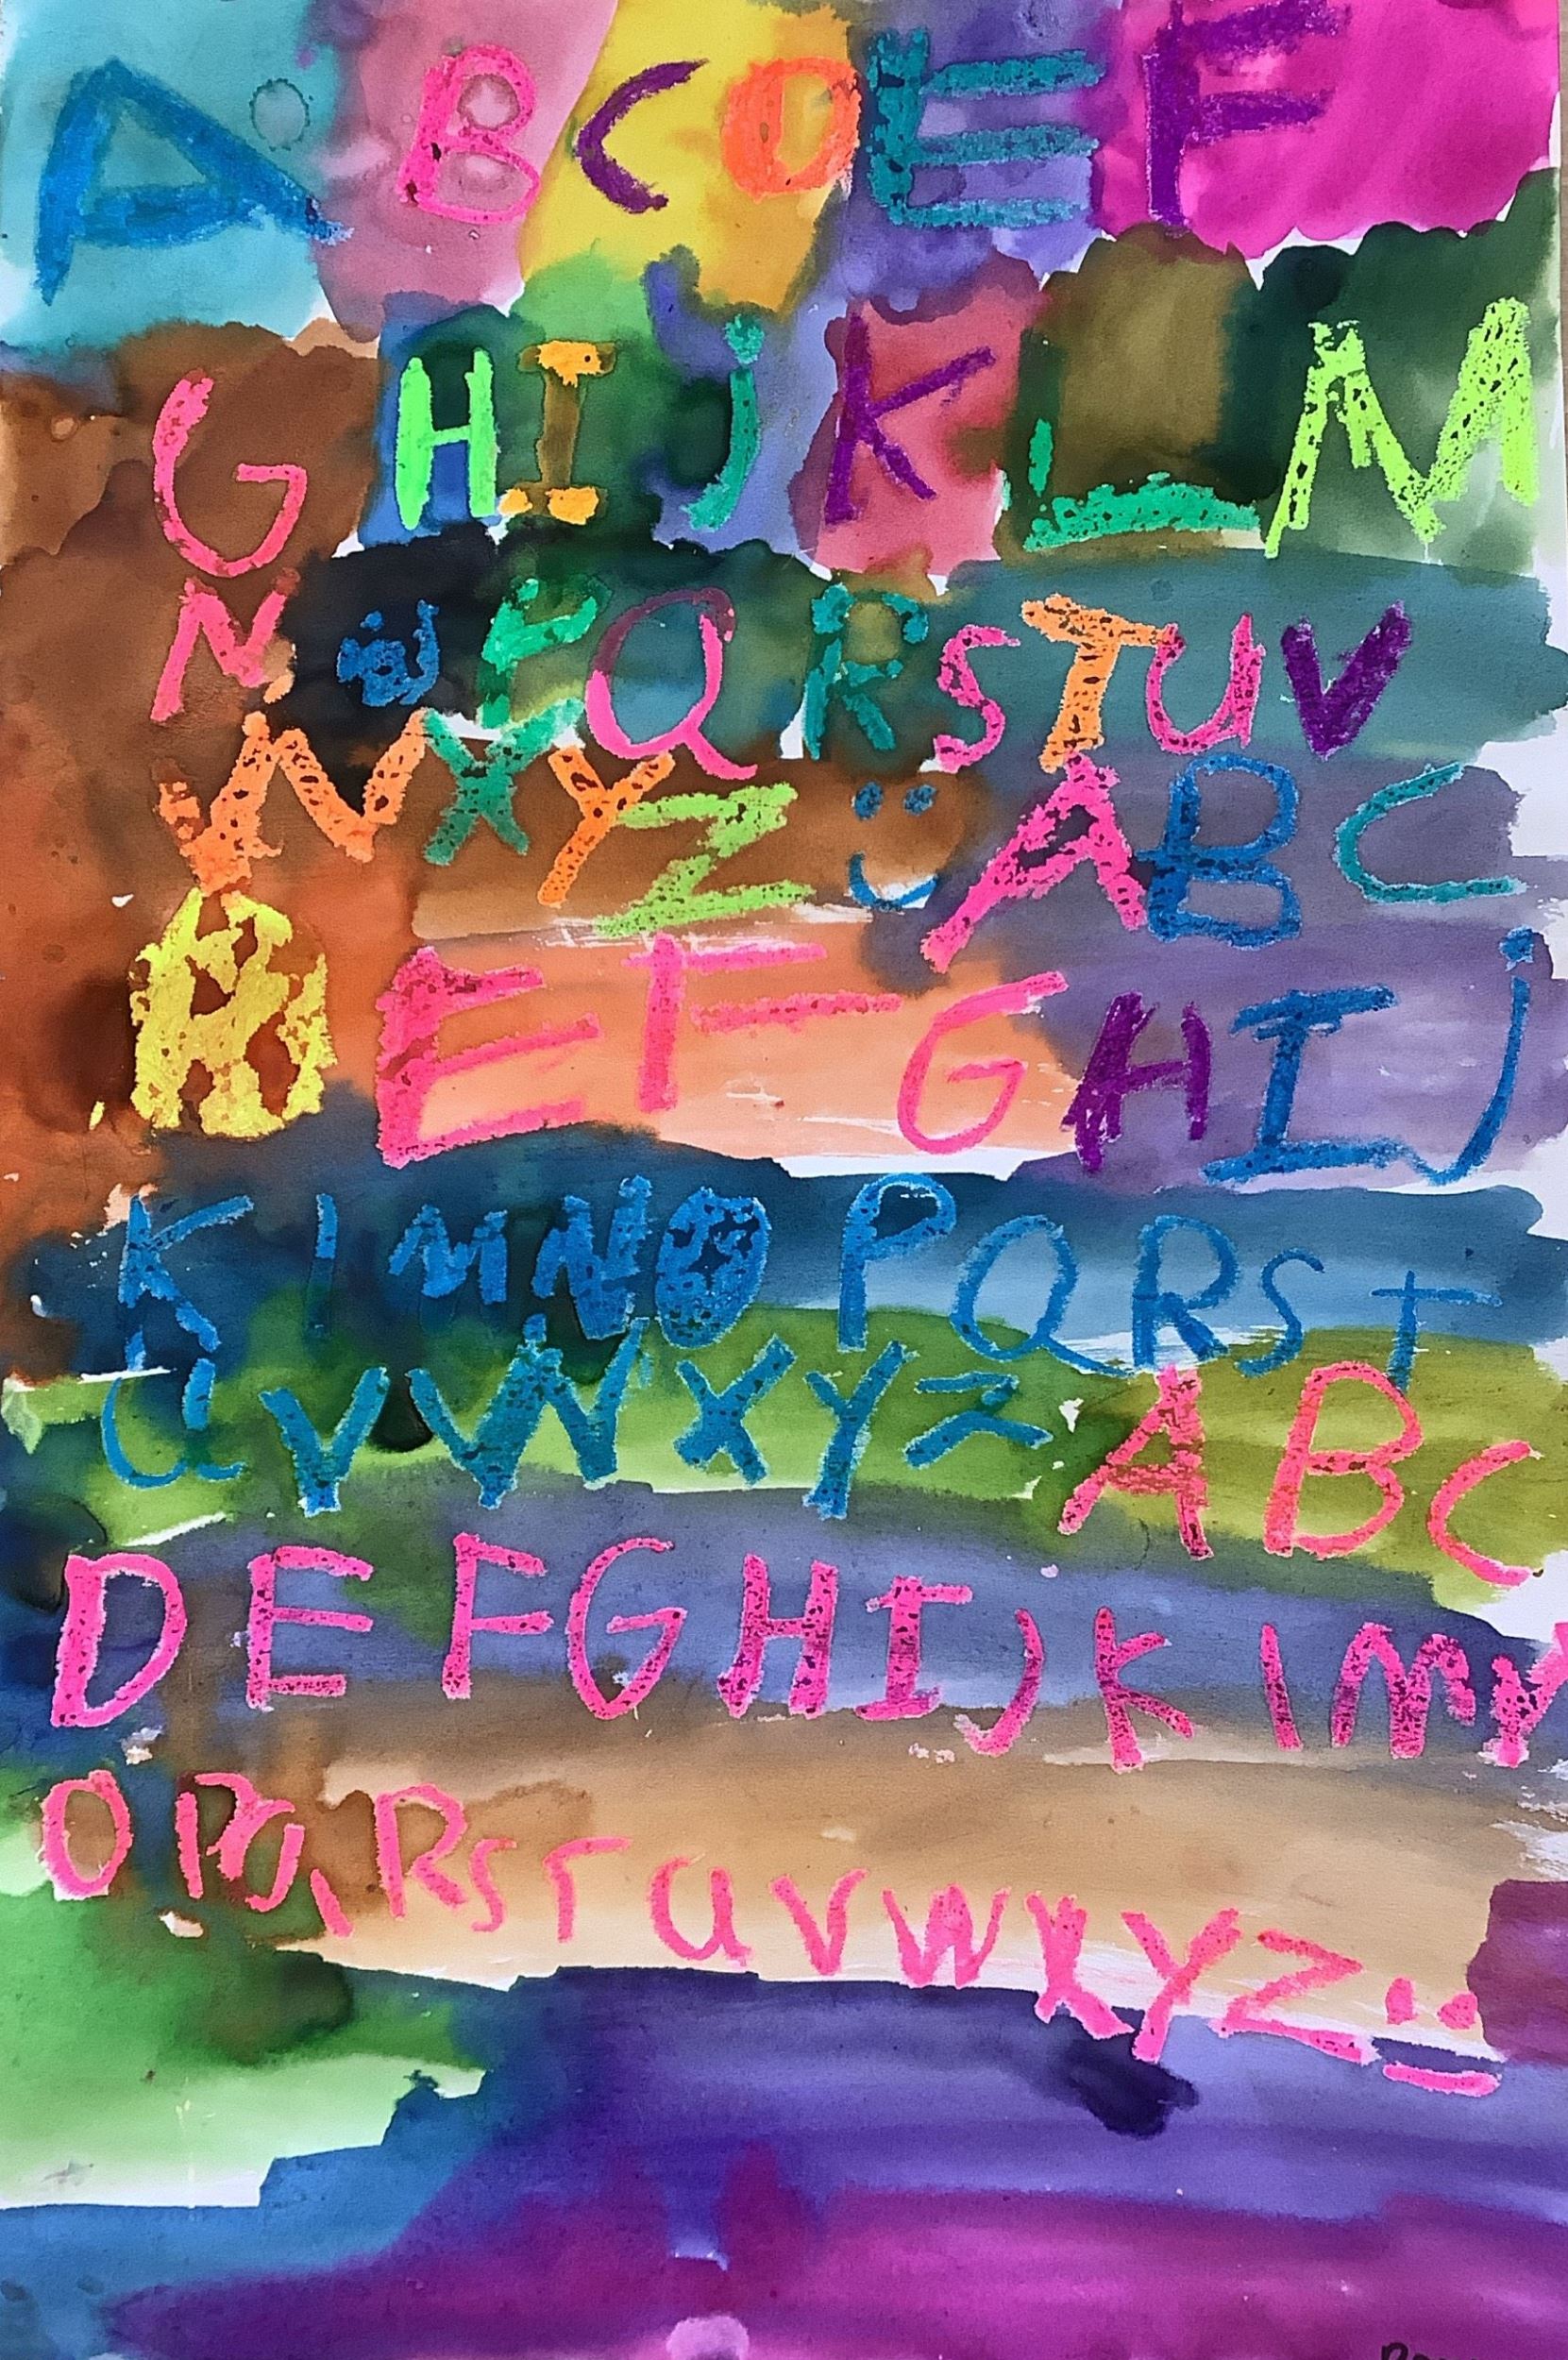 A B C D E F
G H I J K L M
N O P Q R S T U V
W X Y Z A B C
D E F G H I J
K l M N O P Q R S T
U V W X Y Z A B C
D E F G H I J K l M N
O P Q R S T U V W X Y Z